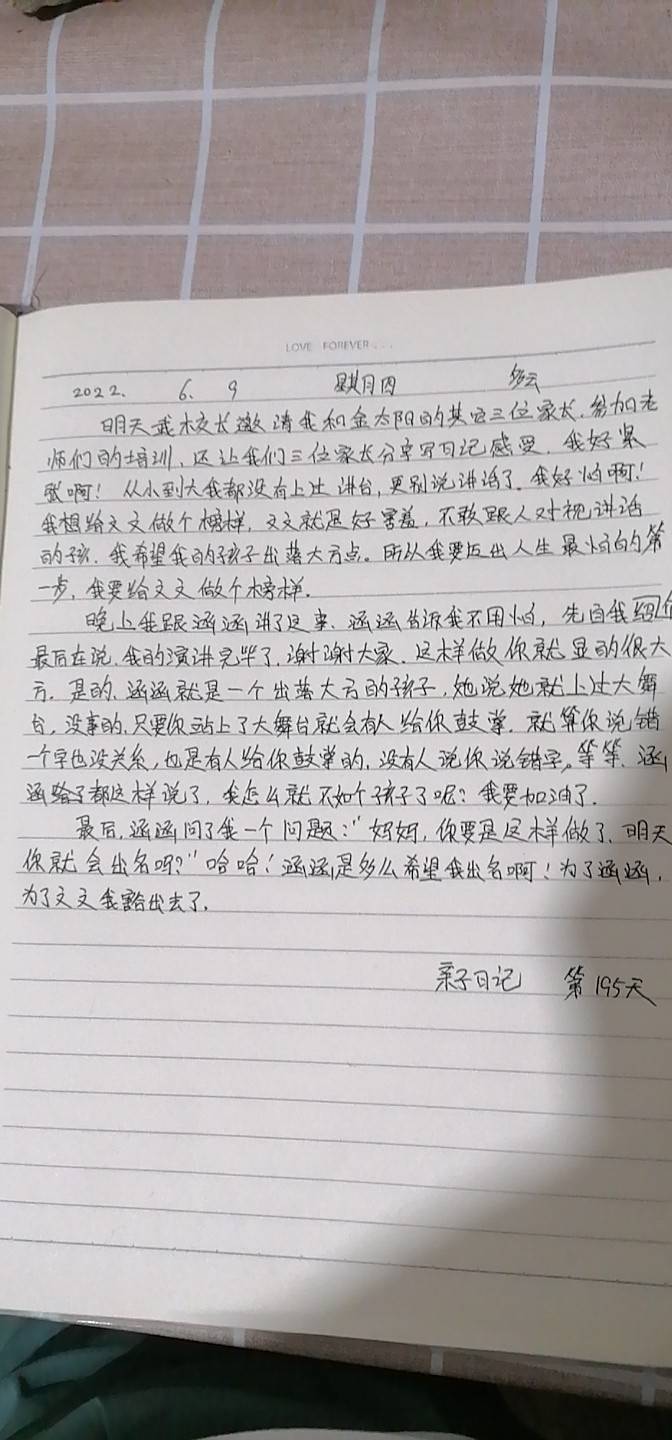 LOVE FOREVER...
2022. 6. 9 星期四 多云
明天武校长邀请我和金太阳的其它三位家长.参加老
师们的培训、还让我们三位家长分享写日记感受.我好紧
张啊！从小到大我都没有上过讲台,更别说讲话了.我好怕啊！
我想给文文做个榜样,文文就是好害羞,不敢跟人对视讲话
的孩.我希望我的孩子出落大方点。所以我要迈出人生最怕的第
一步,我要给文文做个榜样.
晚上我跟涵涵讲了这事.涵涵告诉我不用怕,先自我绍介
最后在说.我的演讲完毕了.谢谢大家.这样做你就显的很大
方.是的.涵涵就是一个出落大方的孩子,她说她就上过大舞
台,没事的,只要你站上了大舞台就会有人给你鼓掌.就算你说错
一个字也没关系,也是有人给你鼓掌的,没有人说你说错字。等等.涵
涵都这样说了,我怎么就不如个孩子了呢？我要加油了.
最后.涵涵问了我一个问题:"妈妈,你要是这样做了.明天
你就会出名吗？"哈哈！涵涵是多么希望我出名啊！为了涵涵,
为了文文我豁出去了.
亲子日记 第195天